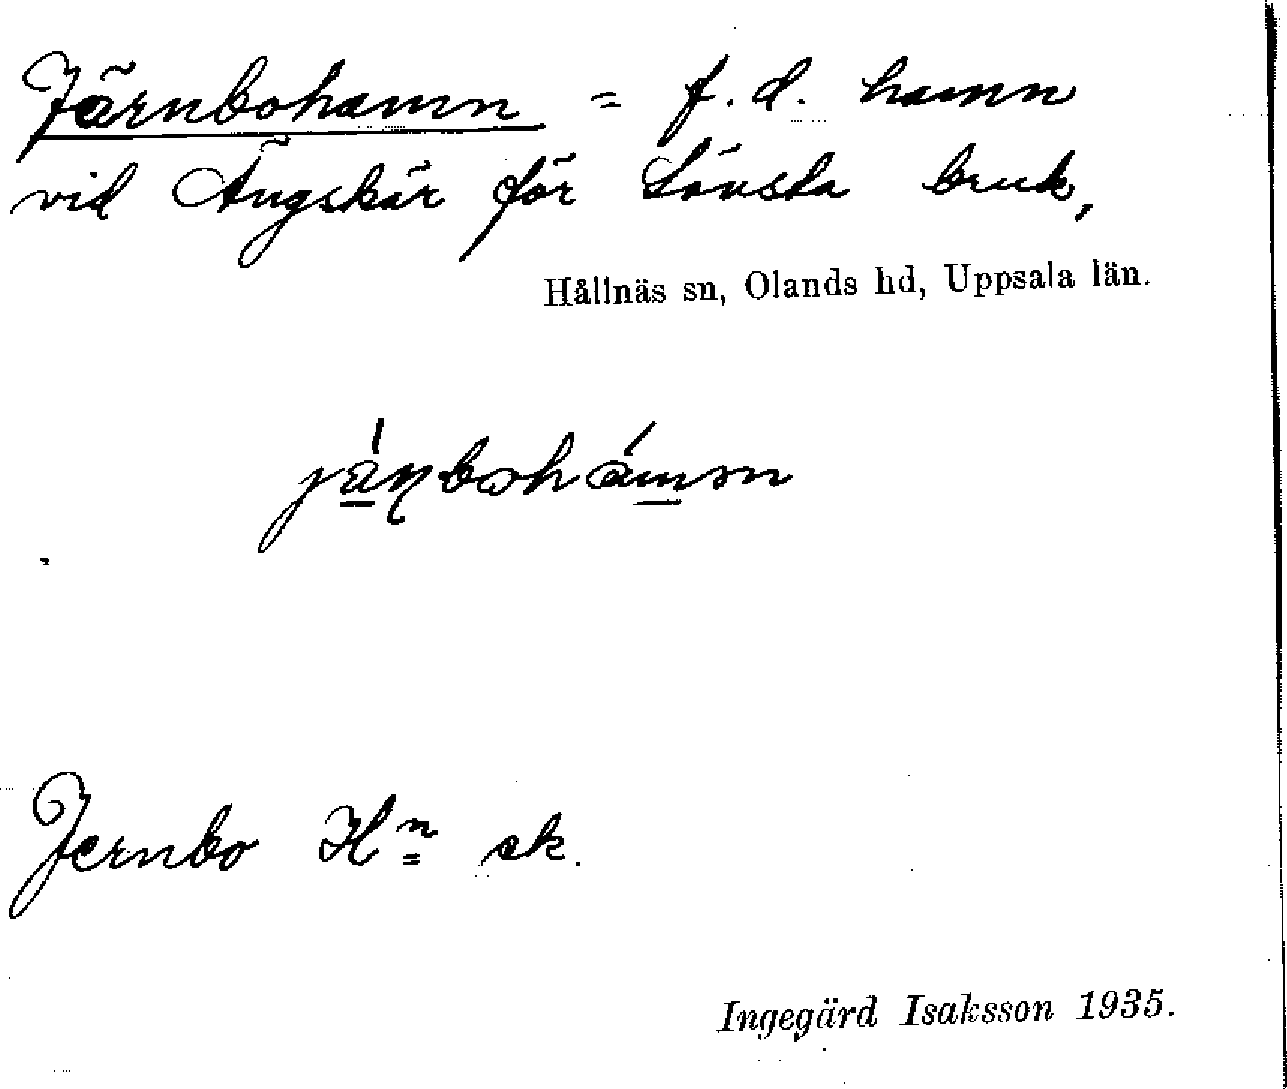 Järnbohamn = f. d. hamn
vid Ängskär för Lövsta bruk,
Hållnäs sn, Olands hd, Uppsala län.
Jernbo Hn ek.
Ingegärd Isaksson 1935.